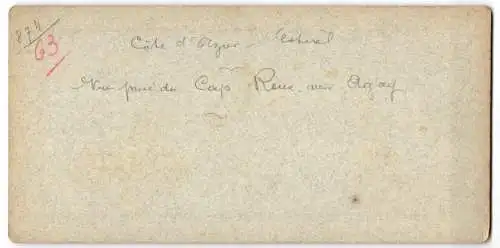 874
63
Côte d'Azur - Esterel
Vue prise du Cap Roux vers Agay